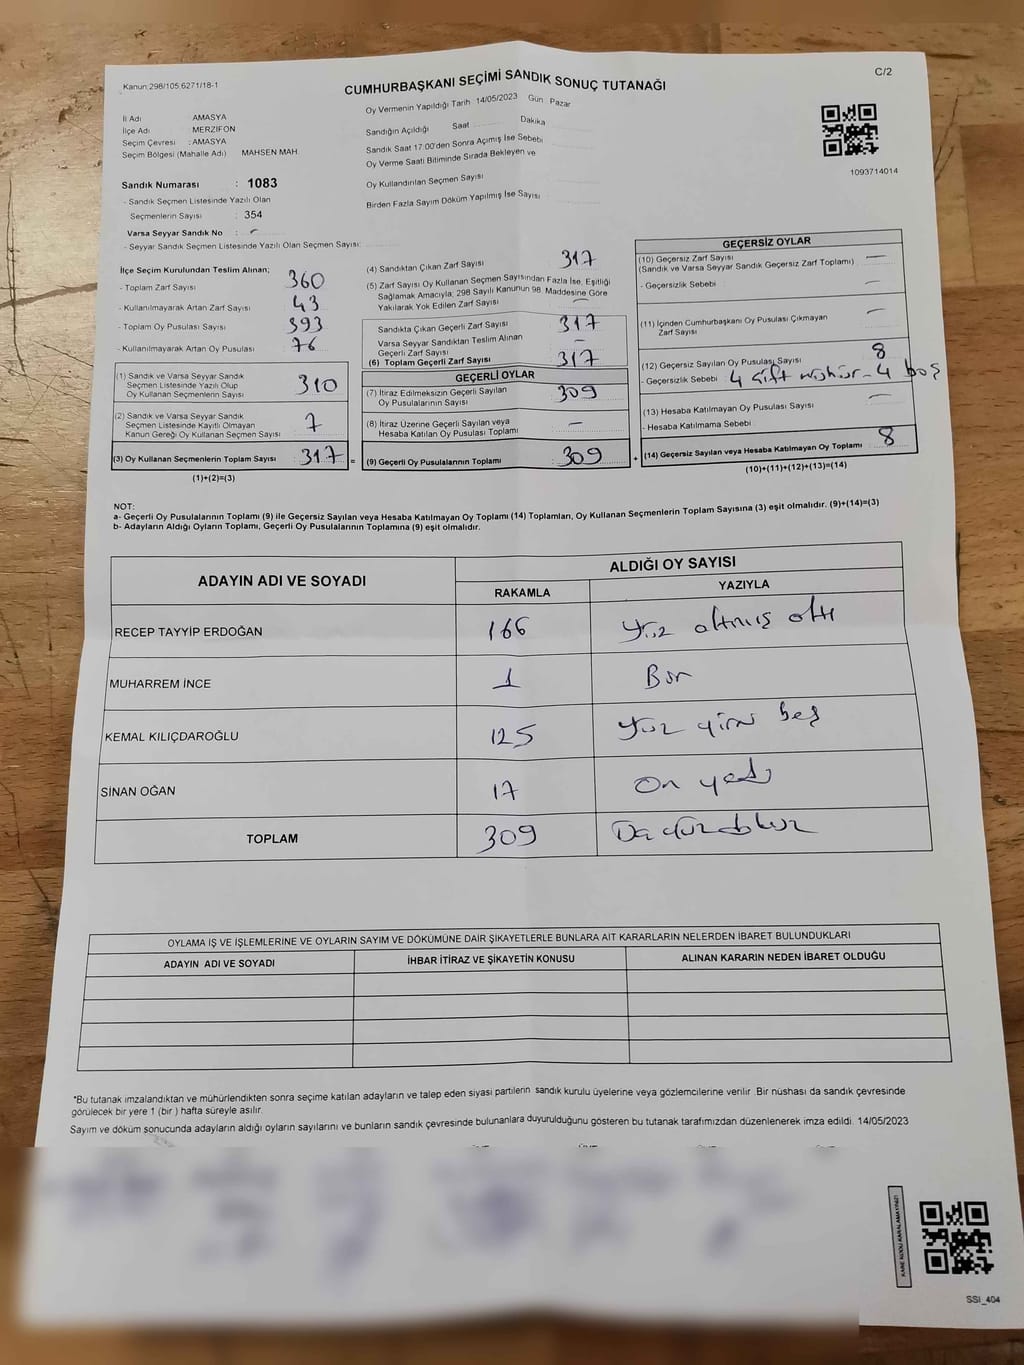 Kanun:298/105:6271/18-1
C/2
CUMHURBAŞKANI SEÇİMİ SANDIK SONUÇ TUTANAĞI
İl Adı AMASYA
İlçe Adı MERZİFON
Seçim Çevresi : AMASYA
Seçim Bölgesi (Mahalle Adı) MAHSEN MAH.
Sandık Numarası : 1083
- Sandık Seçmen Listesinde Yazılı Olan
Seçmenlerin Sayısı : 354
Varsa Seyyar Sandık No : -
- Seyyar Sandık Seçmen Listesinde Yazılı Olan Seçmen Sayısı:
Oy Vermenin Yapıldığı Tarih 14/05/2023 Gün Pazar
Sandığın Açıldığı Saat Dakika
Sandık Saat 17.00'den Sonra Açımış İse Sebebi
Oy Verme Saati Bitiminde Sırada Bekleyen ve
Oy Kullandırılan Seçmen Sayısı
Birden Fazla Sayım Döküm Yapılmış İse Sayısı
1093714014
İlçe Seçim Kurulundan Teslim Alınan;
- Toplam Zarf Sayısı 360
- Kullanılmayarak Artan Zarf Sayısı 43
- Toplam Oy Pusulası Sayısı 393
- Kullanılmayarak Artan Oy Pusulası 76
(1) Sandık ve Varsa Seyyar Sandık
Seçmen Listesinde Yazılı Olup
Oy Kullanan Seçmen Sayısı 310
(2) Sandık ve Varsa Seyyar Sandık
Seçmen Listesinde Kayıtlı Olmayan
Kanun Gereği Oy Kullanan Seçmen Sayısı 7
(3) Oy Kullanan Seçmenlerin Toplam Sayısı 317 =
(1)+(2)=(3)
(4) Sandıktan Çıkan Zarf Sayısı 317
(5) Zarf Sayısı Oy Kullanan Seçmen Sayısından Fazla İse, Eşitliği
Sağlamak Amacıyla; 298 Sayılı Kanunun 98. Maddesine Göre
Yakılarak Yok Edilen Zarf Sayısı -
Sandıkta Çıkan Geçerli Zarf Sayısı 317
Varsa Seyyar Sandıktan Teslim Alınan
Geçerli Zarf Sayısı -
(6) Toplam Geçerli Zarf Sayısı 317
GEÇERLİ OYLAR
(7) İtiraz Edilmeksizin Geçerli Sayılan
Oy Pusulalarının Sayısı 309
(8) İtiraz Üzerine Geçerli Sayılan veya
Hesaba Katılan Oy Pusulası Toplamı -
(9) Geçerli Oy Pusulalarının Toplamı 309 +
GEÇERSİZ OYLAR
(10) Geçersiz Zarf Sayısı -
(Sandık ve Varsa Seyyar Sandık Geçersiz Zarf Toplamı)
- Geçersizlik Sebebi -
(11) İçinden Cumhurbaşkanı Oy Pusulası Çıkmayan
Zarf Sayısı -
(12) Geçersiz Sayılan Oy Pusulası Sayısı 8
- Geçersizlik Sebebi : 4 çift mühür - 4 boş
(13) Hesaba Katılmayan Oy Pusulası Sayısı -
- Hesaba Katılmama Sebebi
(14) Geçersiz Sayılan veya Hesaba Katılmayan Oy Toplamı 8
(10)+(11)+(12)+(13)=(14)
NOT:
a- Geçerli Oy Pusulalarının Toplamı (9) ile Geçersiz Sayılan veya Hesaba Katılmayan Oy Toplamı (14) Toplamları, Oy Kullanan Seçmenlerin Toplam Sayısına (3) eşit olmalıdır. (9)+(14)=(3)
b- Adayların Aldığı Oyların Toplamı, Geçerli Oy Pusulalarının Toplamına (9) eşit olmalıdır.
ADAYIN ADI VE SOYADI
ALDIĞI OY SAYISI
RAKAMLA YAZIYLA
RECEP TAYYİP ERDOĞAN 166 Yüz altmış altı
MUHARREM İNCE 1 Bir
KEMAL KILIÇDAROĞLU 125 Yüz yirmi beş
SİNAN OĞAN 17 On yedi
TOPLAM 309
OYLAMA İŞ VE İŞLEMLERİNE VE OYLARIN SAYIM VE DÖKÜMÜNE DAİR ŞİKAYETLERLE BUNLARA AİT KARARLARIN NELERDEN İBARET BULUNDUKLARI
ADAYIN ADI VE SOYADI İHBAR İTİRAZ VE ŞİKAYETİN KONUSU ALINAN KARARIN NEDEN İBARET OLDUĞU
*Bu tutanak imzalandıktan ve mühürlendikten sonra seçime katılan adayların ve talep eden siyasi partilerin sandık kurulu üyelerine veya gözlemcilerine verilir. Bir nüshası da sandık çevresinde
görülecek bir yere 1 (bir ) hafta süreyle asılır.
Sayım ve döküm sonucunda adayların aldığı oyların sayılarını ve bunların sandık çevresinde bulunanlara duyurulduğunu gösteren bu tutanak tarafımızdan düzenlenerek imza edildi. 14/05/2023
KARE KODU KARALAMAYINIZ!
SSI_404